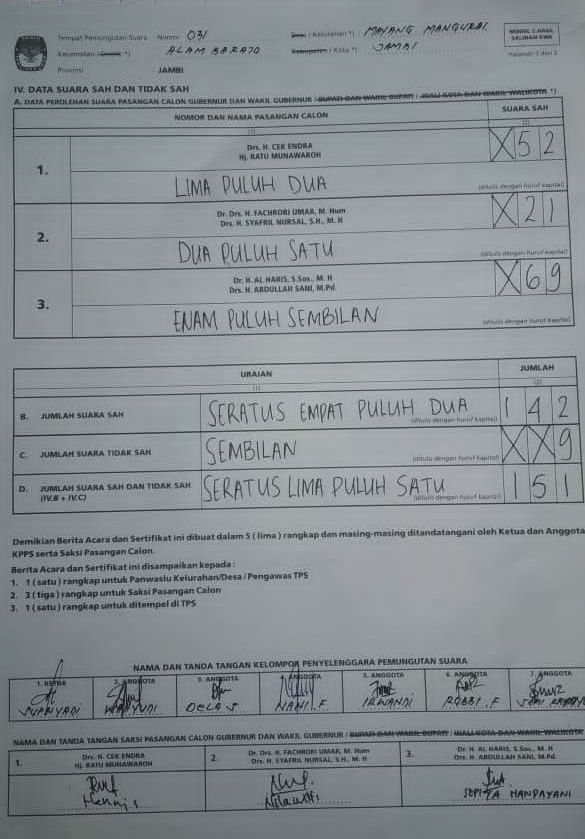 Tempat Pemungutan Suara Nomor: 031
Desa / Kelurahan *) MAYANG MANGURAI
Kecamatan / Distrik *) ALAM BARAJO
Kabupaten / Kota *) JAMBI
Provinsi JAMBI
MODEL C.HASIL
SALINAN-KWK
Halaman 2 dari 2
IV. DATA SUARA SAH DAN TIDAK SAH
A. DATA PEROLEHAN SUARA PASANGAN CALON GUBERNUR DAN WAKIL GUBERNUR / BUPATI DAN WAKIL BUPATI / WALI KOTA DAN WAKIL WALIKOTA *)
NOMOR DAN NAMA PASANGAN CALON SUARA SAH
(1) (2)
1. Drs. H. CEK ENDRA
Hj. RATU MUNAWAROH
X 5 2
LIMA PULUH DUA
(ditulis dengan huruf kapital)
2. Dr. Drs. H. FACHRORI UMAR, M. Hum
Drs. H. SYAFRIL NURSAL, S.H., M. H
X 2 1
DUA PULUH SATU
(ditulis dengan huruf kapital)
3. Dr. H. AL HARIS, S.Sos., M. H
Drs. H. ABDULLAH SANI, M.Pd.
X 6 9
ENAM PULUH SEMBILAN
(ditulis dengan huruf kapital)
URAIAN JUMLAH
(1) (2)
B. JUMLAH SUARA SAH SERATUS EMPAT PULUH DUA 1 4 2
(ditulis dengan huruf kapital)
C. JUMLAH SUARA TIDAK SAH SEMBILAN X X 9
(ditulis dengan huruf kapital)
D. JUMLAH SUARA SAH DAN TIDAK SAH SERATUS LIMA PULUH SATU 1 5 1
(IV.B + IV.C)
(ditulis dengan huruf kapital)
Demikian Berita Acara dan Sertifikat ini dibuat dalam 5 ( lima ) rangkap dan masing-masing ditandatangani oleh Ketua dan Anggota
KPPS serta Saksi Pasangan Calon.
Berita Acara dan Sertifikat ini disampaikan kepada :
1. 1 ( satu ) rangkap untuk Panwaslu Kelurahan/Desa / Pengawas TPS
2. 3 ( tiga ) rangkap untuk Saksi Pasangan Calon
3. 1 ( satu ) rangkap untuk ditempel di TPS
NAMA DAN TANDA TANGAN KELOMPOK PENYELENGGARA PEMUNGUTAN SUARA
1. KETUA 2. ANGGOTA 3. ANGGOTA ANGGOTA 5. ANGGOTA 6. ANGGOTA 7. ANGGOTA
SUPRIYADI WAHYUDI DELA S NANI.F IRWANDI ROBBI.F
NAMA DAN TANDA TANGAN SAKSI PASANGAN CALON GUBERNUR DAN WAKIL GUBERNUR / BUPATI DAN WAKIL BUPATI / WALI KOTA DAN WAKIL WALIKOTA
1. Drs. H. CEK ENDRA
HJ. RATU MUNAWAROH
2. Dr. Drs. H. FACHRORI UMAR, M. Hum
Drs. H. SYAFRIL NURSAL, S.H., M. H
3. Dr. H. AL HARIS, S.Sos., M. H
Drs. H. ABDULLAH SANI, M.Pd.
Hennis Nilawati SOPITA HANDAYANI